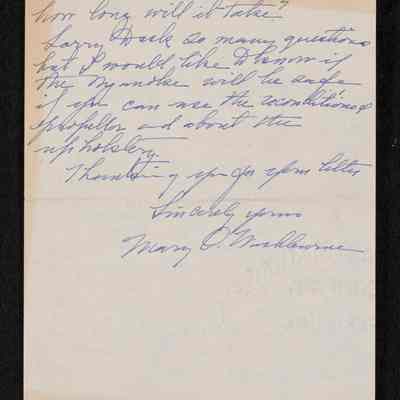 how long will it take?
Sorry I ask so many questions
but I would like to know if
the my will be safe
if you can use the reconditioned
propellor and about the
upholstery.
Thanking you for your letter
Sincerely yours
Mary D. Washburne